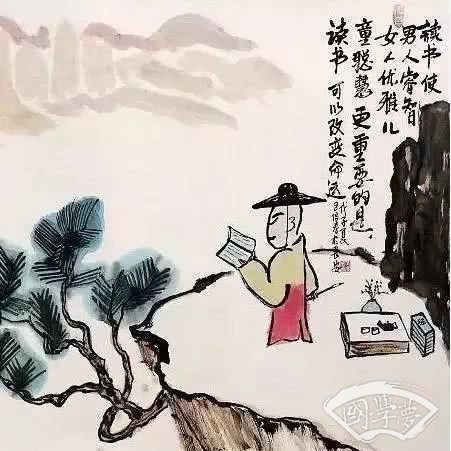 读书使
男人睿智
女人优雅儿
童聪慧更重要的是、
读书可以改变命运
國學夢